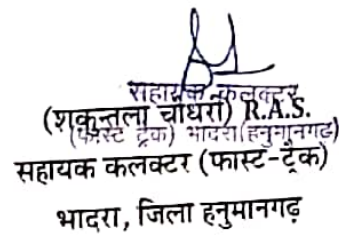 सहायक कलक्टर
(शकुन्तला चौधरी) R.A.S.
(फास्ट ट्रेक) भादरा (हनुमानगढ़)
सहायक कलक्टर (फास्ट-ट्रैक)
भादरा, जिला हनुमानगढ़